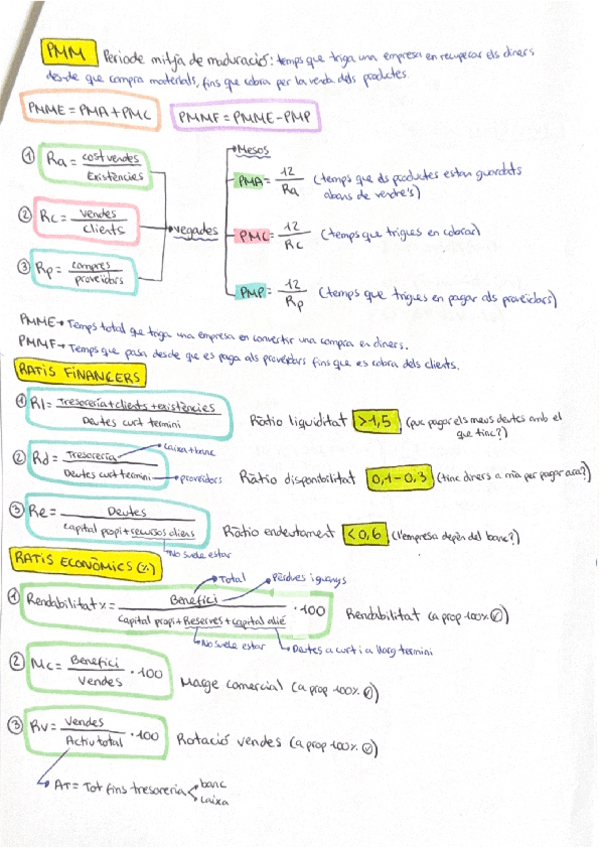 PMM Periode mitjà de maduració: temps que triga una empresa en recuperar els diners
desde que compra materials, fins que cobra per la venda dels productes.
PMME = PMA + PMC PMMF = PMME - PMP
① Ra = cost vendes / Existències
② Rc = vendes / clients
③ Rp = compres / proveïdors
vegades
Mesos
PMA = 12 / Ra (temps que els productes estan guardats
abans de vendre's)
PMC = 12 / Rc (temps que trigues en cobrar)
PMP = 12 / Rp (temps que trigues en pagar als proveïdors)
PMME → Temps total que triga una empresa en convertir una compra en diners.
PMMF → Temps que pasa desde que es paga als proveïdors fins que es cobra dels clients.
RATIS FINANCERS
① Rl = Tresoreria + clients + existències / Deutes curt termini Ràtio liquiditat >1,5 (puc pagar els meus deutes amb el
que tinc?)
② Rd = Tresoreria / Deutes curt termini Ràtio disponibilitat 0,1-0,3 (tinc diners a mà per pagar ara?)
caixa + banc
proveïdors
③ Re = Deutes / capital propi + recursos aliens Ràtio endeutament <0,6 (l'empresa depèn del banc?)
No suele estar
RATIS ECONÒMICS (%)
Total
Pèrdues i guanys
① Rendabilitat % = Benefici / capital propi + Reserves + capital aliè · 100 Rendabilitat (a prop 100% ✓)
No suele estar
Deutes a curt i a llarg termini
② Mc = Benefici / vendes · 100 Marge comercial (a prop 100% ✓)
③ Rv = Vendes / Actiu total · 100 Rotació vendes (a prop 100% ✓)
AT = Tot fins tresoreria
banc
caixa